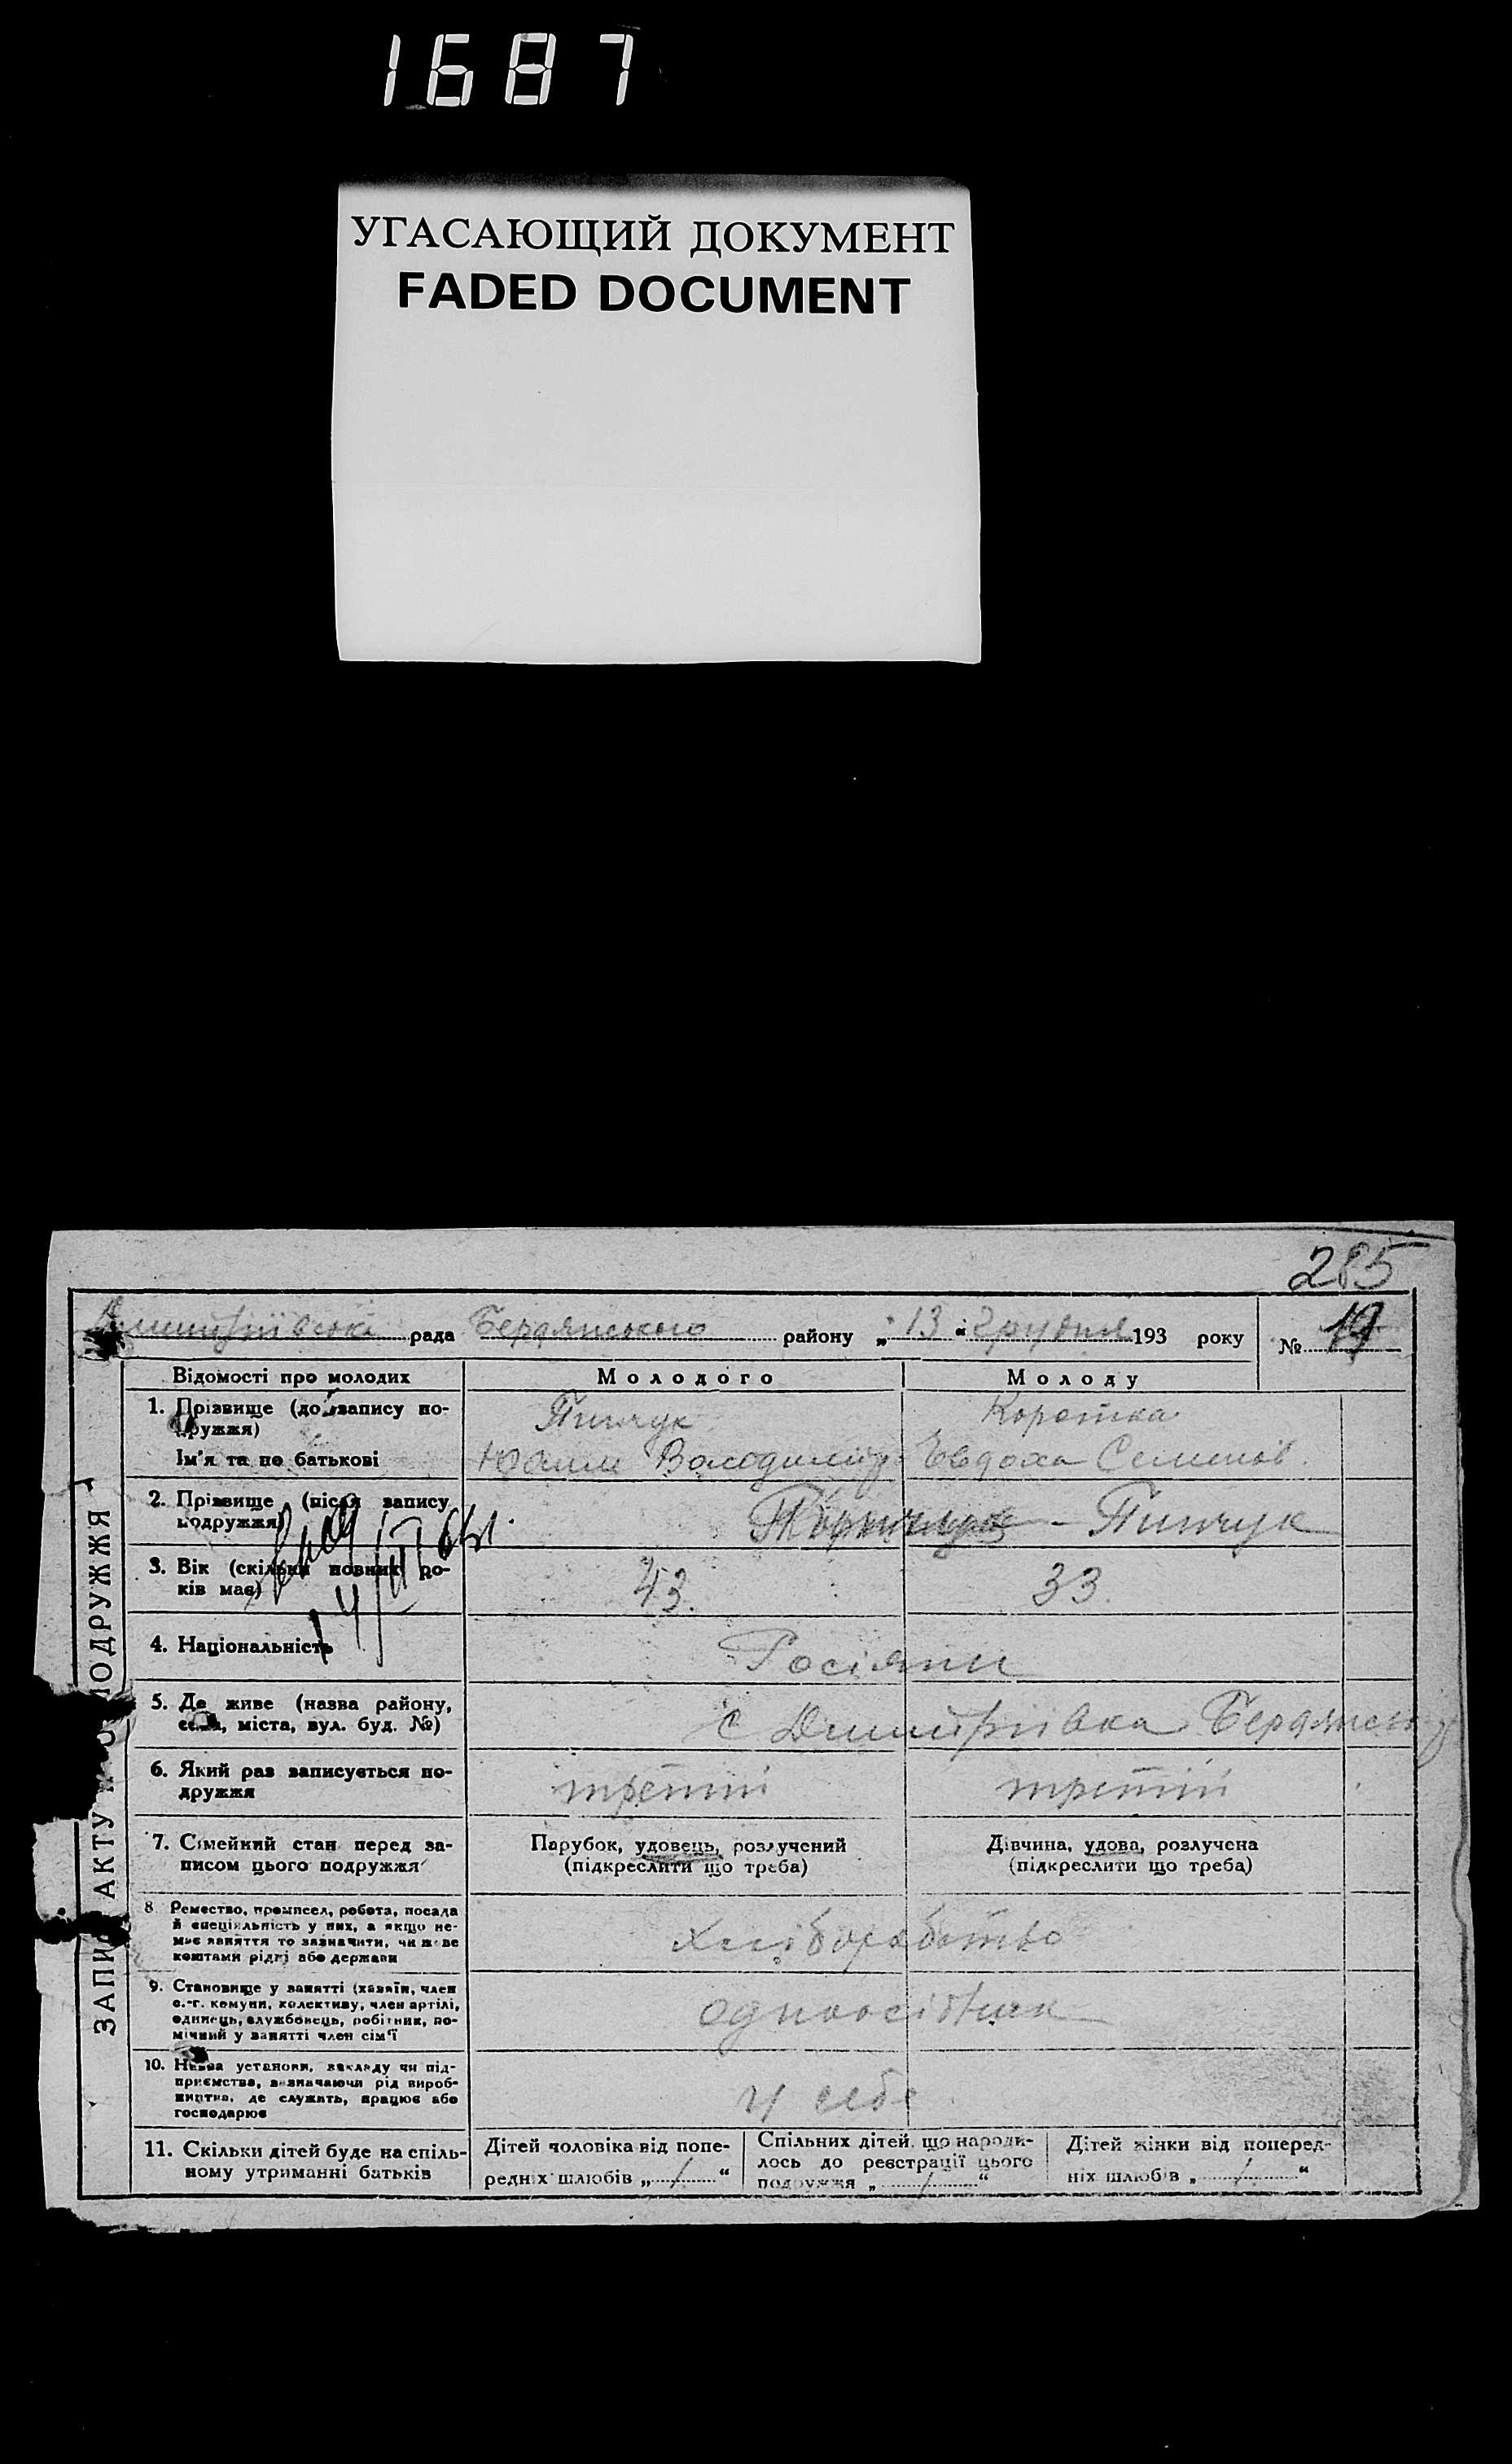 1687
УГАСАЮЩИЙ ДОКУМЕНТ
FADED DOCUMENT
285
рада Бердянського районy „13“ Грудня 193 року № 19
ЗАПИС АКТУ ПОДРУЖЖЯ
Відомості про молодих Молодого Молоду
1. Прізвище (до запису подружжя) Пинчук
Ім'я та по батькові Володимир Евдоха Семенов.
2. Прізвище (після запису подружжя) Пинчук
14/III
3. Вік (скільки повних років має) 43. 33.
4. Національність Росіяни
5. Де живе (назва району, села, міста, вул. буд. №) с Дмитрівка Бердянськ
6. Який раз записується подружжя третій третій
7. Сімейний стан перед записом цього подружжя Парубок, удовець, розлучений (підкреслити що треба) Дівчина, удова, розлучена (підкреслити що треба)
8. Ремество, промисел, робота, посада й спеціяльність у них, а якщо немає заняття то зазначити, чи живе коштами рідні або держави хліборобство
9. Становище у занятті (хазяїн, член с.-г. комуни, колективу, член артілі, одинець, службовець, робітник, помічний у занятті член сім'ї одноосібник
10. Назва установи, закладу чи підприємства, зазначаючи рід виробництва, де служить, працює або господарює у себе
11. Скільки дітей буде на спільному утриманні батьків Дітей чоловіка від попередніх шлюбів „ / “ Спільних дітей, що народилось до реєстрації цього подружжя „ / “ Дітей жінки від попередніх шлюбів „ / “